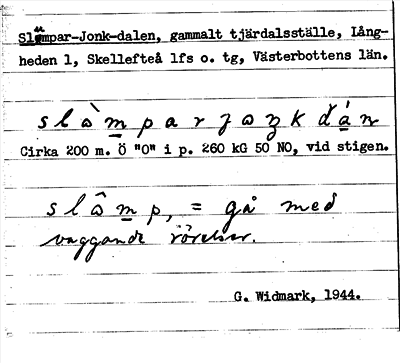 Slåmpar-Jonk-dalen, gammalt tjärdalsställe, Lång-
heden 1, Skellefteå lfs o. tg, Västerbottens län.
Cirka 200 m. Ö "O" i p. 260 kG 50 NO, vid stigen.
= gå med
vaggande rörelser.
G. Widmark, 1944.